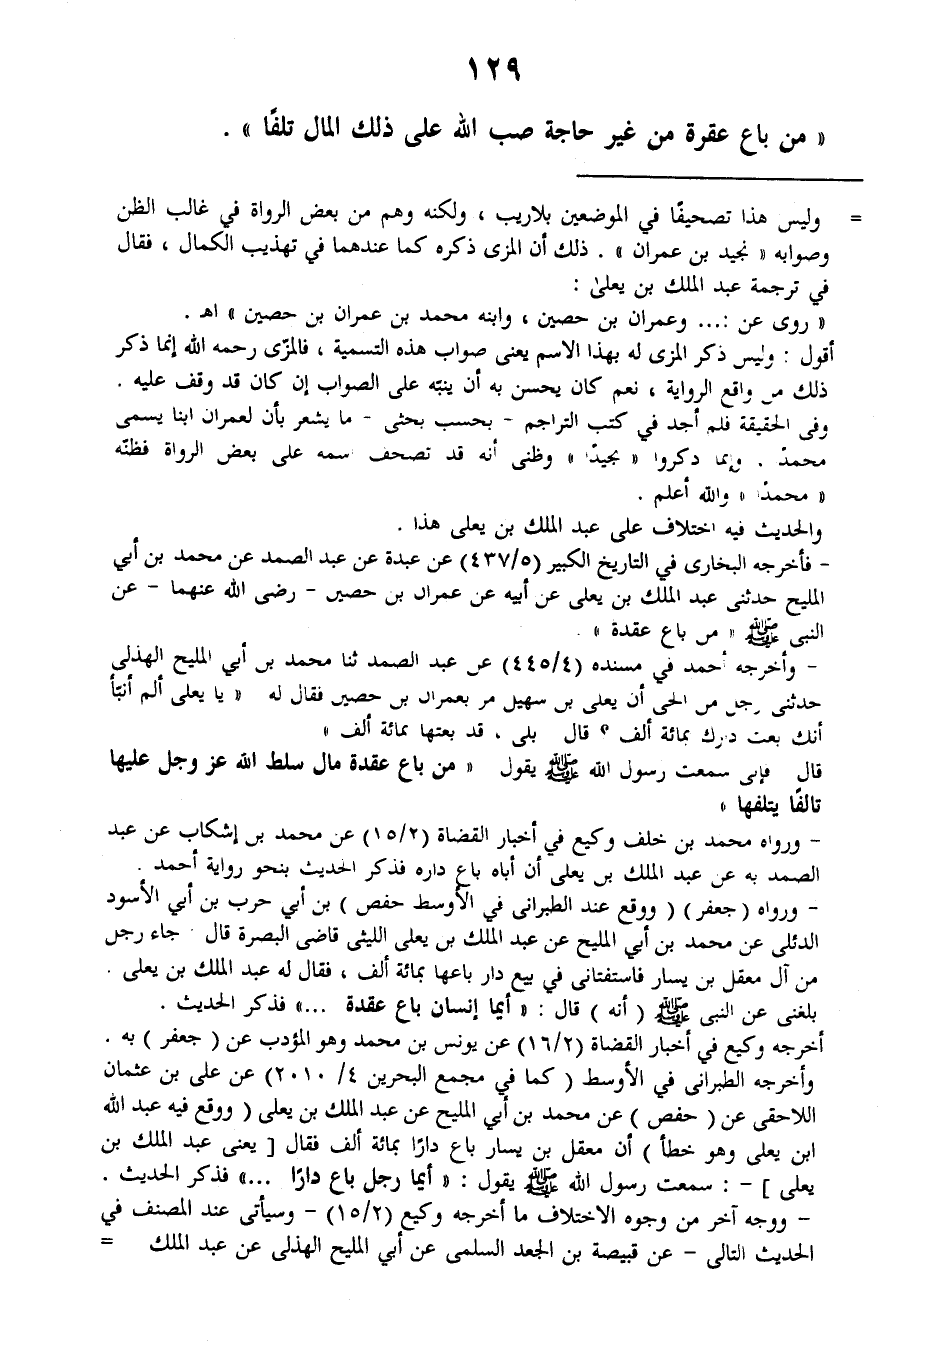 ١٢٩
« من باع عقرة من غير حاجة صب الله على ذلك المال تلفًا » .
= وليس هذا تصحيفًا في الموضعين بلاريب ، ولكنه وهم من بعض الرواة في غالب الظن
وصوابه « نجيد بن عمران » . ذلك أن المزى ذكره كما عندهما في تهذيب الكمال ، فقال
في ترجمة عبد الملك بن يعلىٰ :
« روى عن :... وعمران بن حصين ، وابنه محمد بن عمران بن حصين » اهـ .
أقول : وليس ذكر المزى له بهذا الاسم يعنى صواب هذه التسمية ، فالمزّى رحمه الله إنما ذكر
ذلك من واقع الرواية ، نعم كان يحسن به أن ينبّه على الصواب إن كان قد وقف عليه .
وفى الحقيقة فلم أجد في كتب التراجم - بحسب بحثى - ما يشعر بأن لعمران ابنا يسمى
محمدً . وإنما ذكروا « نجيدً » وظنى أنه قد تصحف سمه على بعض الرواة فظنّه
« محمدً » والله أعلم .
والحديث فيه اختلاف على عبد الملك بن يعلى هذا .
- فأخرجه البخارى في التاريخ الكبير (٤٣٧/٥) عن عبدة عن عبد الصمد عن محمد بن أبي
المليح حدثنى عبد الملك بن يعلى عن أبيه عن عمران بن حصين - رضى الله عنهما - عن
النبى ﷺ « من باع عقدة » .
- وأخرجه أحمد في مسنده (٤٤٥/٤) عن عبد الصمد ثنا محمد بن أبي المليح الهذلى
حدثنى رجل من الحى أن يعلى بن سهيل مر بعمران بن حصين فقال له « يا يعلى ألم أنبّأ
أنك بعت دارك بمائة ألف ؟ قال بلى ، قد بعتها بمائة ألف »
قال فإنى سمعت رسول الله ﷺ يقول « من باع عقدة مال سلط الله عز وجل عليها
تالفًا يتلفها »
- ورواه محمد بن خلف وكيع في أخبار القضاة (١٥/٢) عن محمد بن إشكاب عن عبد
الصمد به عن عبد الملك بن يعلى أن أباه باع داره فذكر الحديث بنحو رواية أحمد .
- ورواه ( جعفر ) ( ووقع عند الطبرانى في الأوسط حفص ) بن أبي حرب بن أبي الأسود
الدئلى عن محمد بن أبي المليح عن عبد الملك بن يعلى الليثى قاضى البصرة قال جاء رجل
من آل معقل بن يسار فاستفتانى في بيع دار باعها بمائة ألف ، فقال له عبد الملك بن يعلى .
بلغنى عن النبى ﷺ ( أنه ) قال : « أيما إنسان باع عقدة ...» فذكر الحديث .
أخرجه وكيع في أخبار القضاة (١٦/٢) عن يونس بن محمد وهو المؤدب عن ( جعفر ) به .
وأخرجه الطبرانى في الأوسط ( كما في مجمع البحرين ٤/ ٢٠١٠) عن على بن عثمان
اللاحقى عن ( حفص ) عن محمد بن أبي المليح عن عبد الملك بن يعلى ( ووقع فيه عبد الله
ابن يعلى وهو خطأ ) أن معقل بن يسار باع دارًا بمائة ألف فقال [ يعنى عبد الملك بن
يعلى ] - : سمعت رسول الله ﷺ يقول : « أيما رجل باع دارًا ...» فذكر الحديث .
- ووجه آخر من وجوه الاختلاف ما أخرجه وكيع (١٥/٢) - وسيأتى عند المصنف في
الحديث التالى - عن قبيصة بن الجعد السلمى عن أبي المليح الهذلى عن عبد الملك =